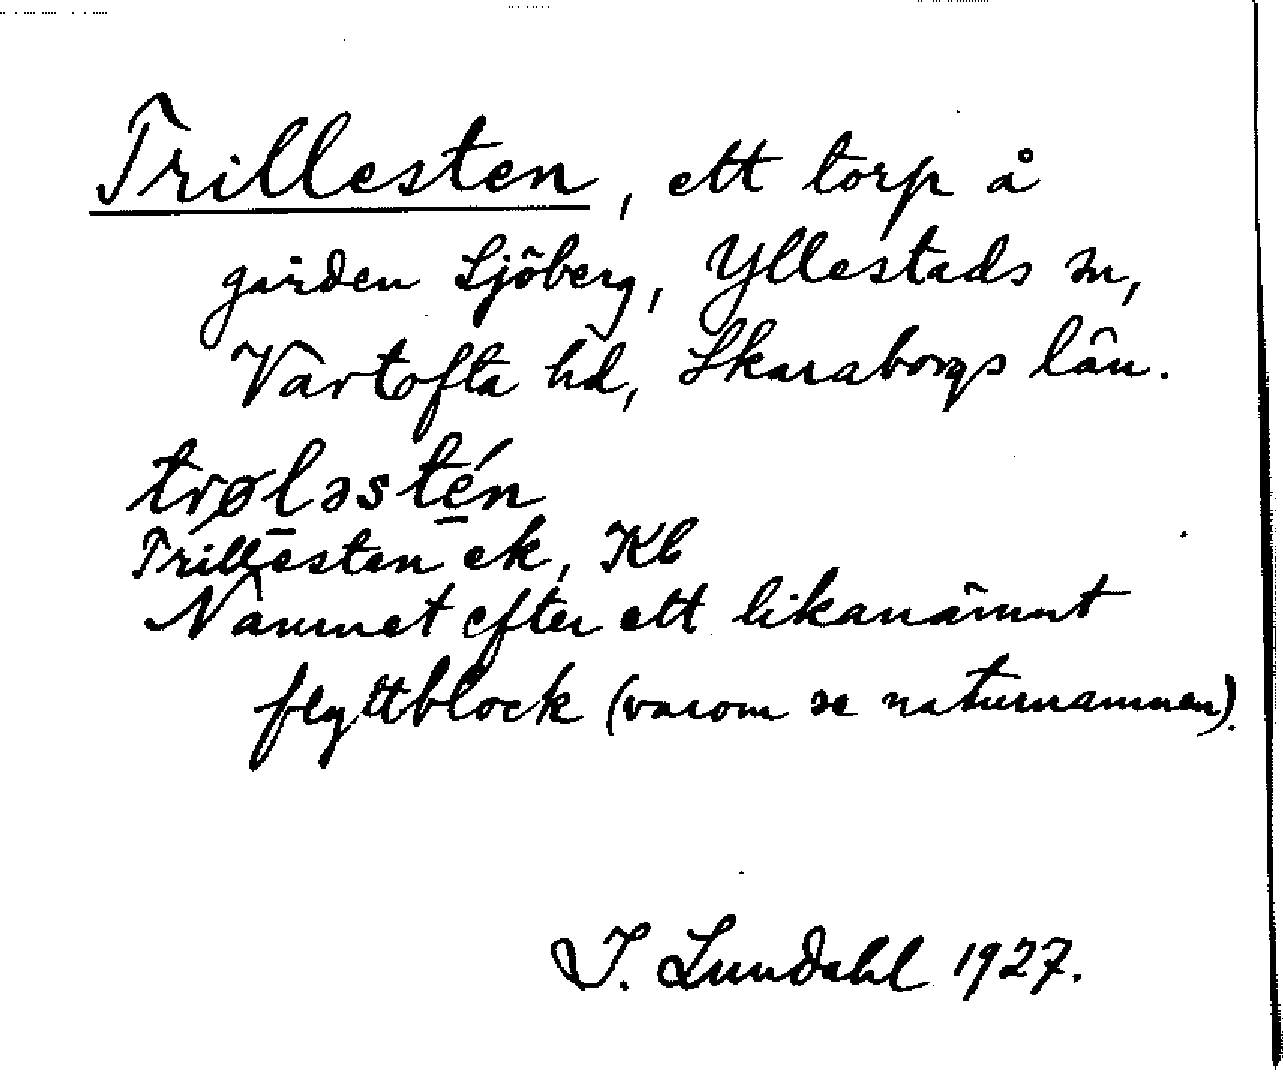 Trillesten, ett torp å
gården Sjöberg, Yllestads sn,
Vartofta hd, Skaraborgs län.
trøləstén
Trillesten ek, Kb
Namnet efter ett likanämnt
flyttblock (varom se naturnamnen).
I. Lundahl 1927.